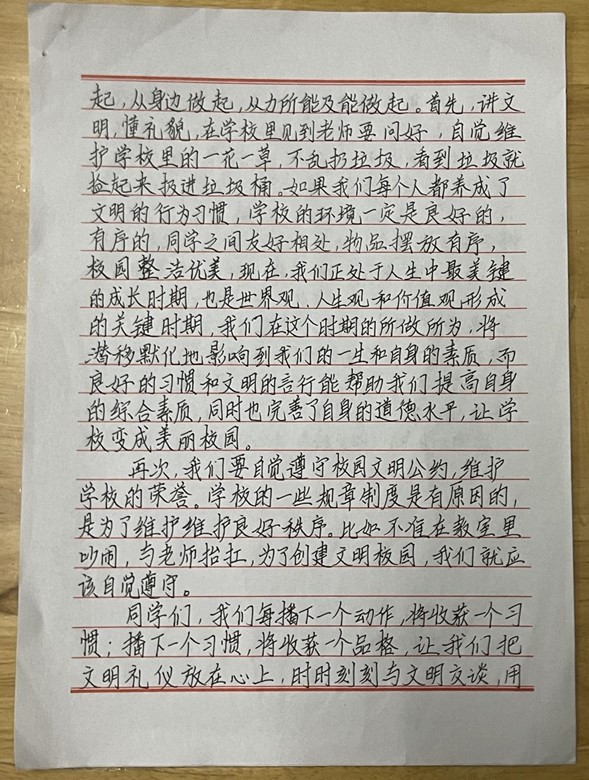 起，从身边做起，从力所能及能做起。首先，讲文
明，懂礼貌，在学校里见到老师要问好，自觉维
护学校里的一花一草，不乱扔垃圾，看到垃圾就
捡起来投进垃圾桶。如果我们每个人都养成了
文明的行为习惯，学校的环境一定是良好的，
有序的，同学之间友好相处，物品摆放有序，
校园整洁优美，现在，我们正处于人生中最关键
的成长时期，也是世界观、人生观和价值观形成
的关键时期，我们在这个时期的所做所为，将
潜移默化地影响到我们的一生和自身的素质，而
良好的习惯和文明的言行能帮助我们提高自身
的综合素质，同时也完善了自身的道德水平，让学
校变成美丽校园。
再次，我们要自觉遵守校园文明公约，维护
学校的荣誉。学校的一些规章制度是有原因的，
是为了维护维护良好秩序。比如不准在教室里
吵闹，与老师抬扛，为了创建文明校园，我们就应
该自觉遵守。
同学们，我们每播下一个动作，将收获一个习
惯；播下一个习惯，将收获一个品格，让我们把
文明礼仪放在心上，时时刻刻与文明交谈，用